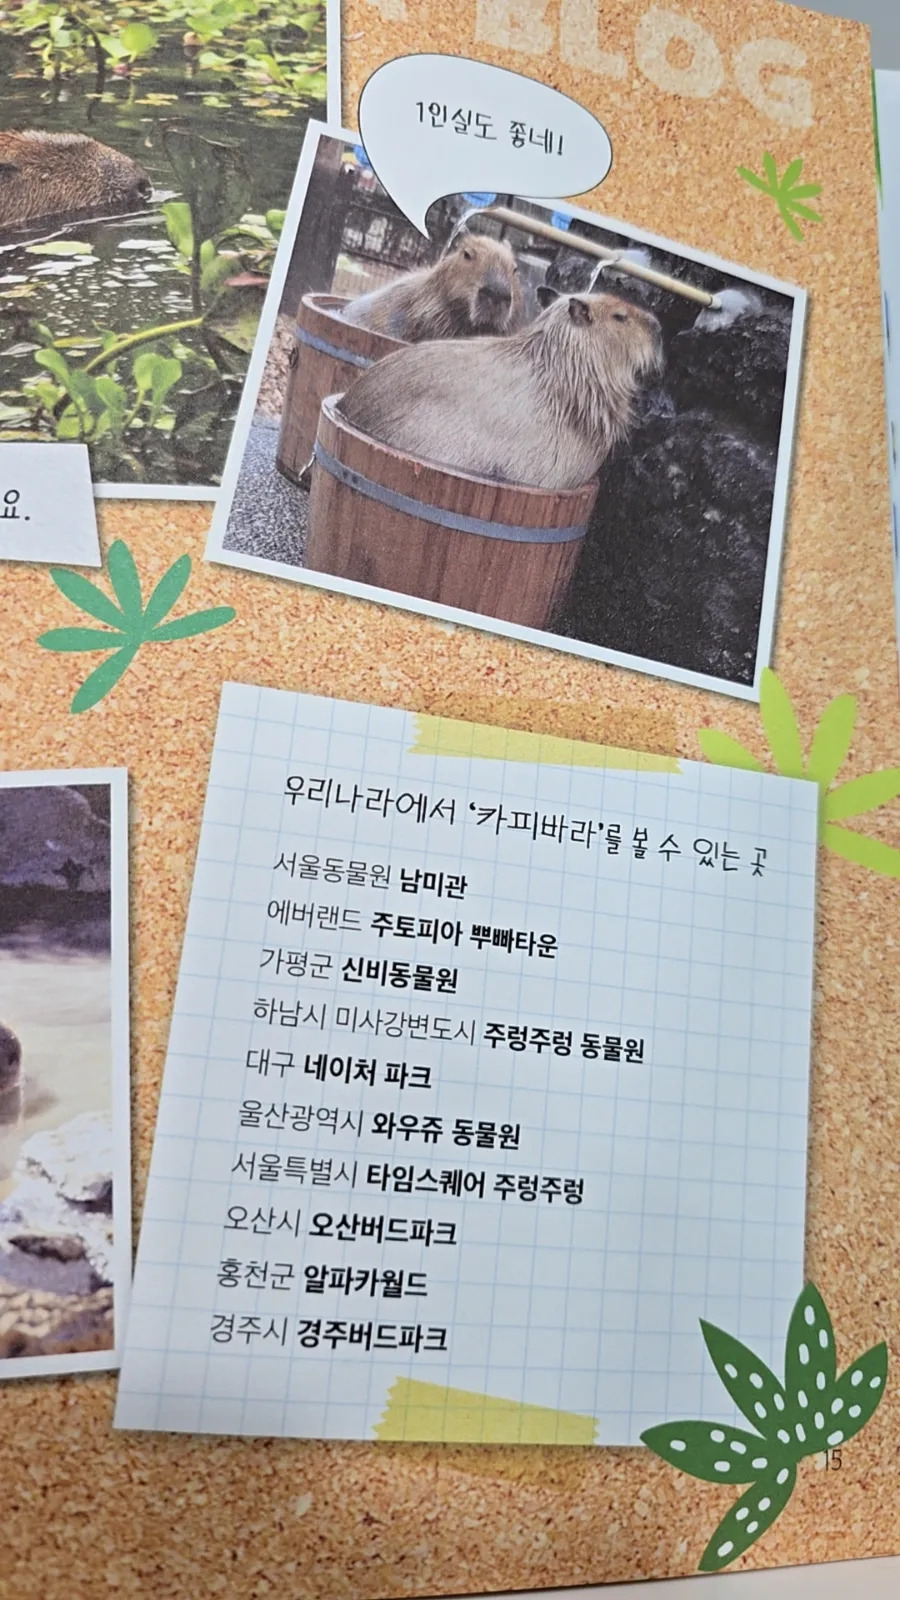 BLOG
1인실도 좋네!
요.
우리나라에서 ‘카피바라’를 볼 수 있는 곳
서울동물원 남미관
에버랜드 주토피아 뿌빠타운
가평군 신비동물원
하남시 미사강변도시 주렁주렁 동물원
대구 네이처 파크
울산광역시 와우쥬 동물원
서울특별시 타임스퀘어 주렁주렁
오산시 오산버드파크
홍천군 알파카월드
경주시 경주버드파크
15